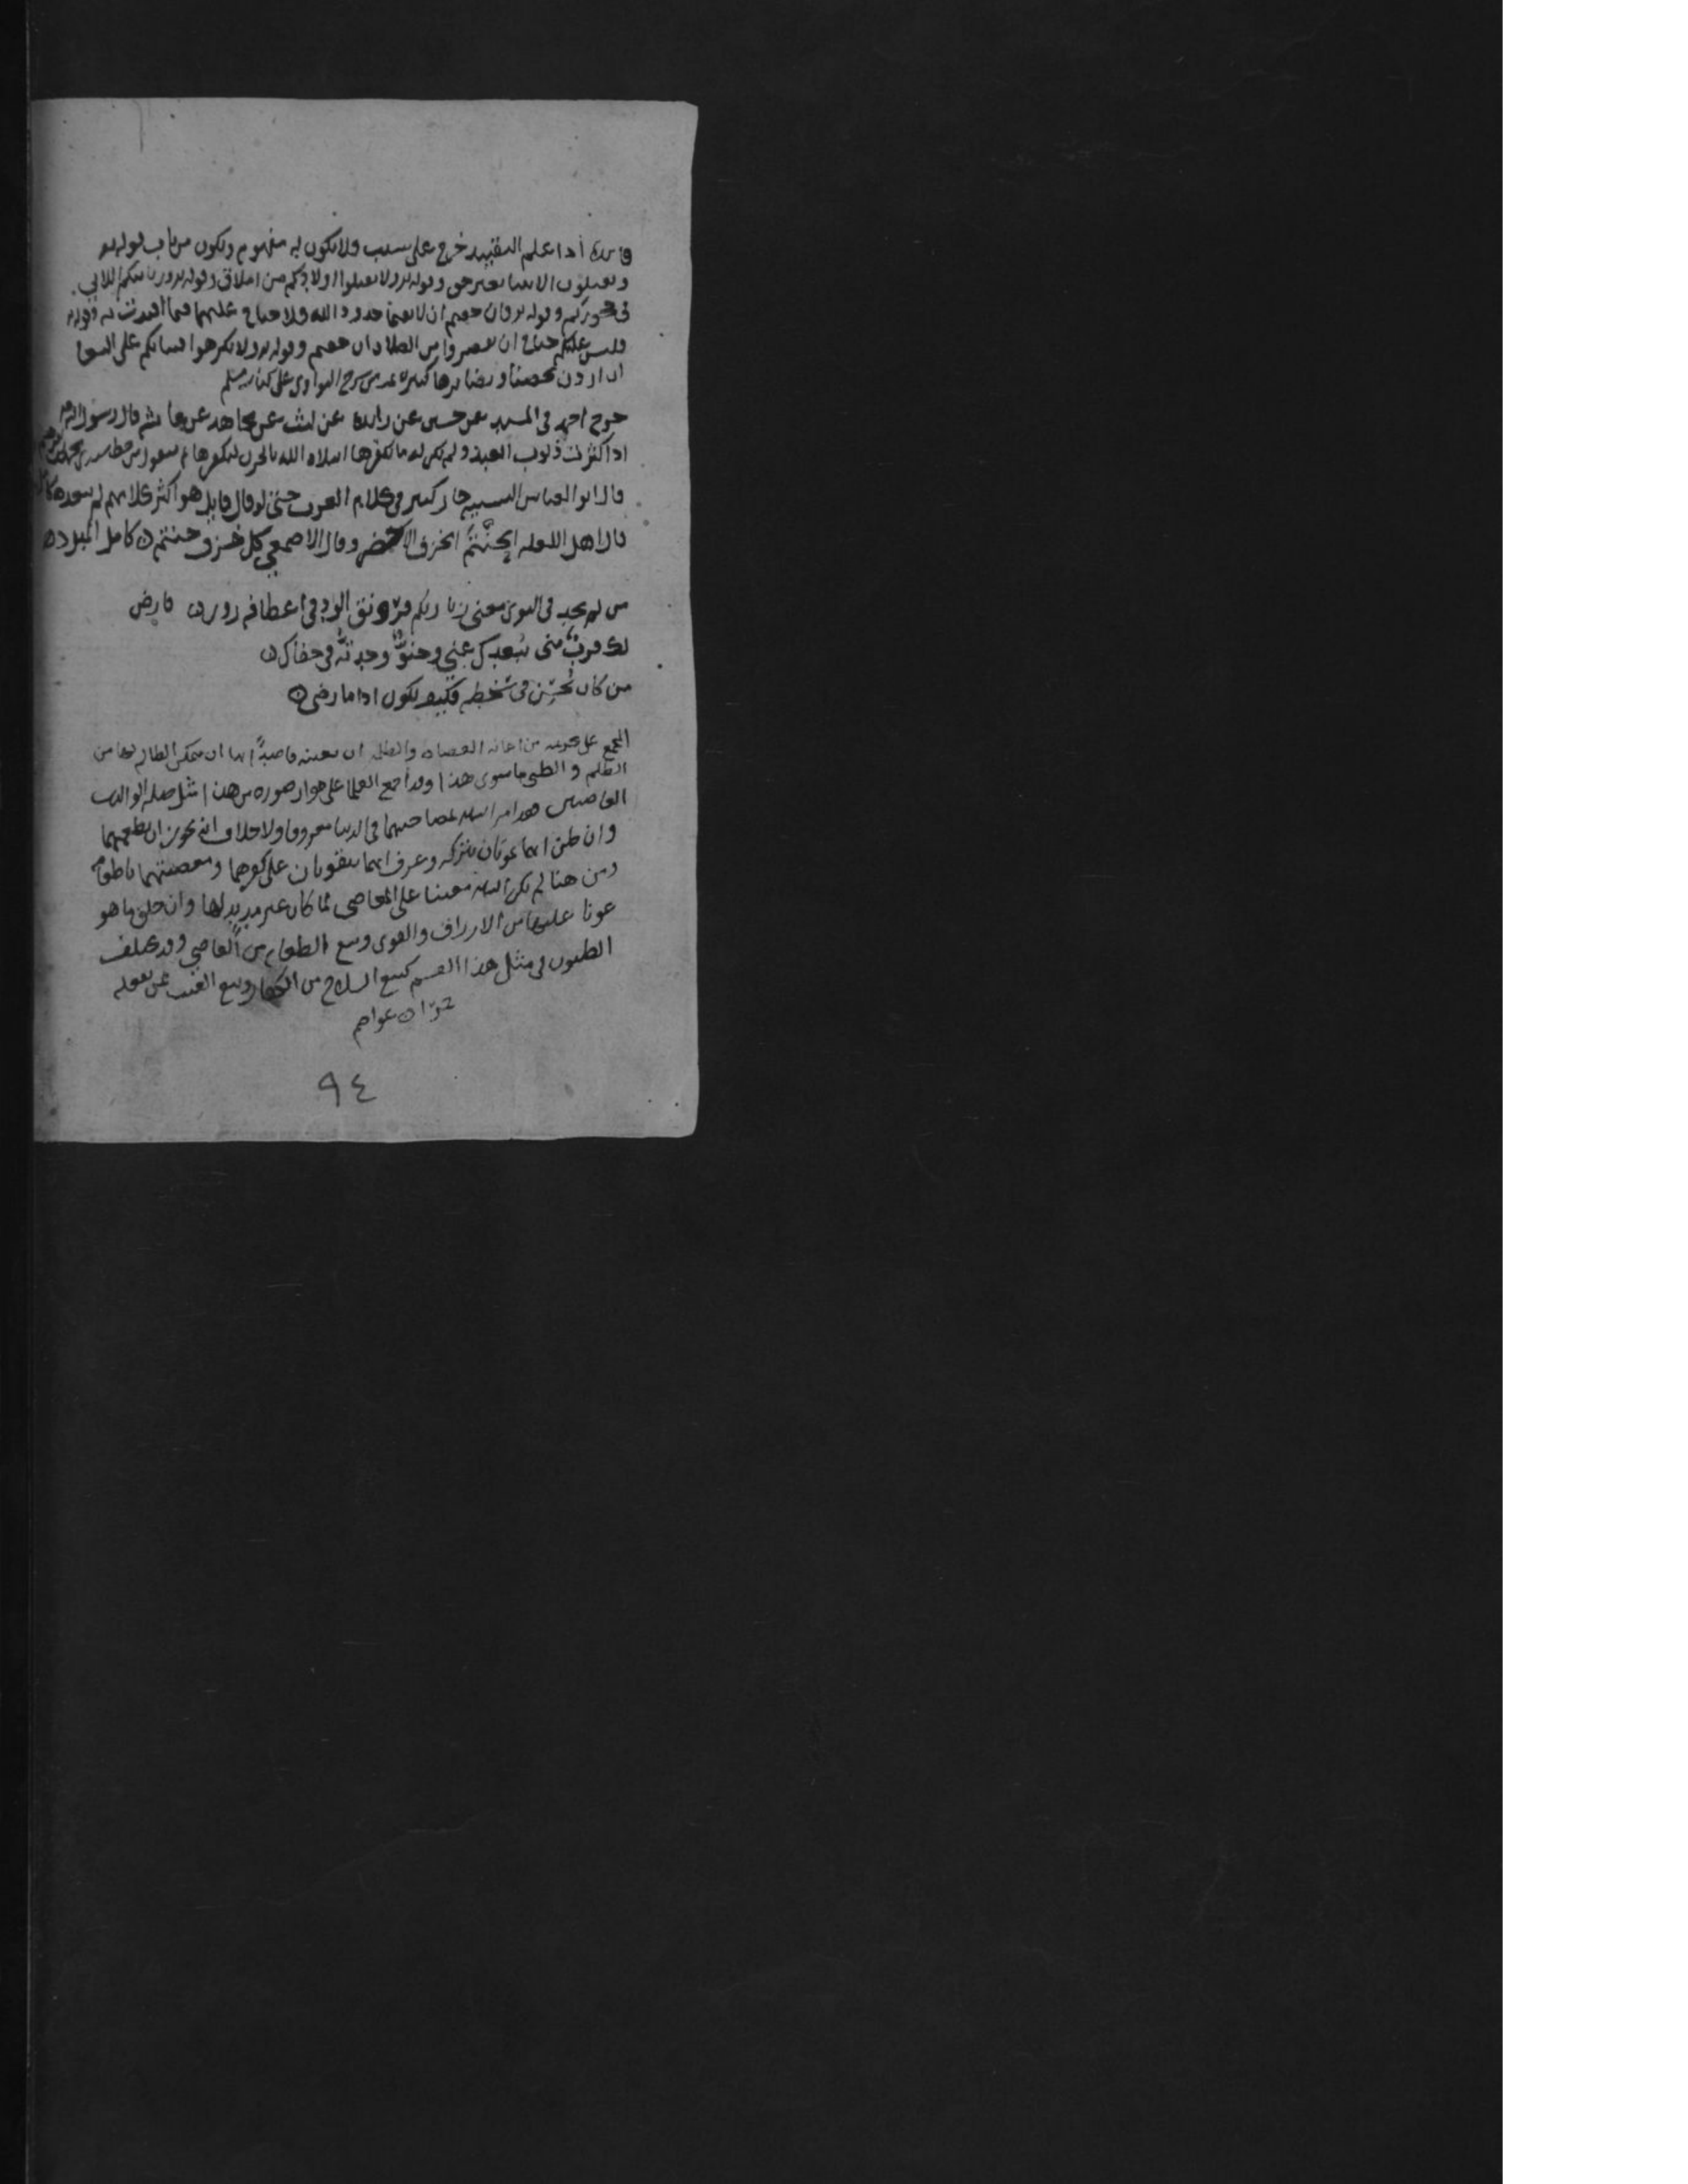 فائدة اذا علم التقييد خرج على سبب ولا يكون له مفهوم ويكون من باب قوله تع
ويقتلون الانبيا بغير حق وقوله تع ولا تقتلوا اولادكم من املاق وقوله تع وربائبكم اللاتي
في حجوركم وقوله تع فان خفتم ان لا يقيما حدود الله فلا جناح عليهما فيما افتدت به وقوله
فليس عليكم جناح ان تقصروا من الصلاة ان خفتم وقوله تع ولا تكرهوا فتياتكم على البغا
ان اردن تحصنا ونظايرها كثيره من شرح النواوي على كتاب مسلم
خرج احمد في المسند عن حسين عن زايدة عن ليث عن مجاهد عن عائشه قال رسول الله
اذا كثرت ذنوب العبد ولم يكن له ما يكفرها ابتلاه الله بالحزن ليكفرها
قال ابو العباس التشبيه جار كثير في كلام العرب حتى لو قال قايل هو اكثر كلامهم لم يبعد كامل
قال اهل اللغه الحنتم الخزف الاخضر وقال الاصمعي كل خزف حنتم كامل المبرد
من لم يجد في النوى معنى زيارتكم فرونق الود في اعطافه زور فارض
لك قرب مني ببعدك عني وحنو وجدته في جفاك
من كان يحسن في سخطه فكيف يكون اذا ما رضي
المجمع على تحريمه من اعانه العصاه والظلمه ان يعينه قاصدا لها ان يتمكن الظالم بها من
الظلم والظني ما سوى هذا وقد اجمع العلما على جواز صوره من هذا مثل صله الوالدين
العاصيين فقد امر الله بمصاحبتهما في الدنيا معروفا ولا خلاف انه يجوز ان يطعمهما
وان ظن انهما يموتان بتركه وعرف انهما يتقويان على كفرهما ومعصيتهما باطعام
ومن هنا لم يكن الله معينا على المعاصي لما كان غير مريد لها وان خلق ما هو
عونا عليها من الارزاق والقوى وبيع الطعام من العاصي وقد تختلف
الظنون في مثل هذا القسم كبيع السلاح من الكفار وبيع العنب ممن يجعله
خمرا عواصم
٩٤